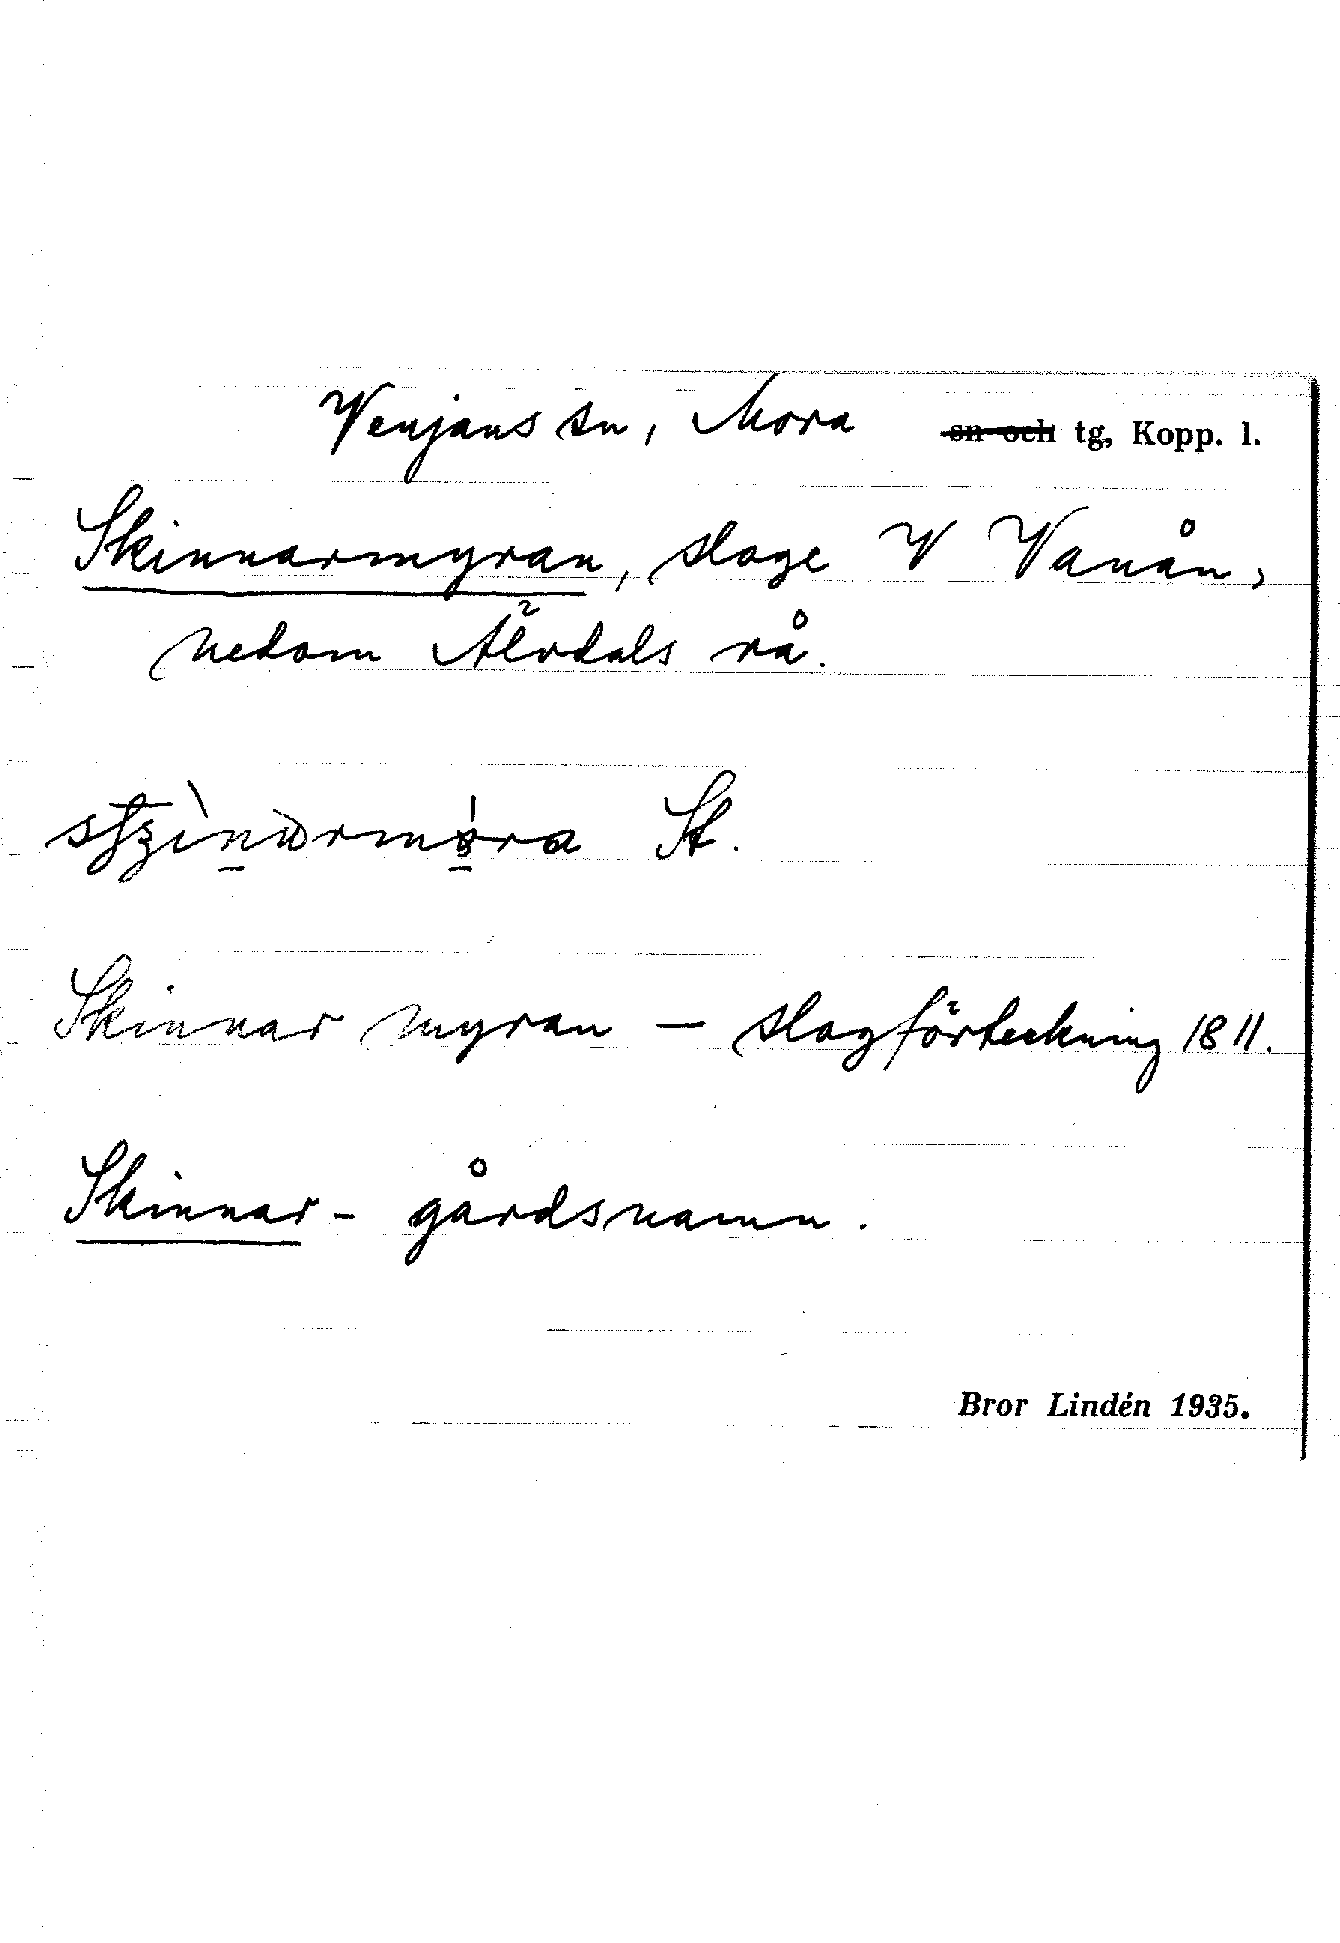 Venjans sn, Mora sn och tg, Kopp. l.
Skinnarmyran, sloge V Vanån,
nedom Älvdals rå.
St.
Skinnar myran – slogförteckning 1811.
Skinnar- gårdsnamn.
Bror Lindén 1935.